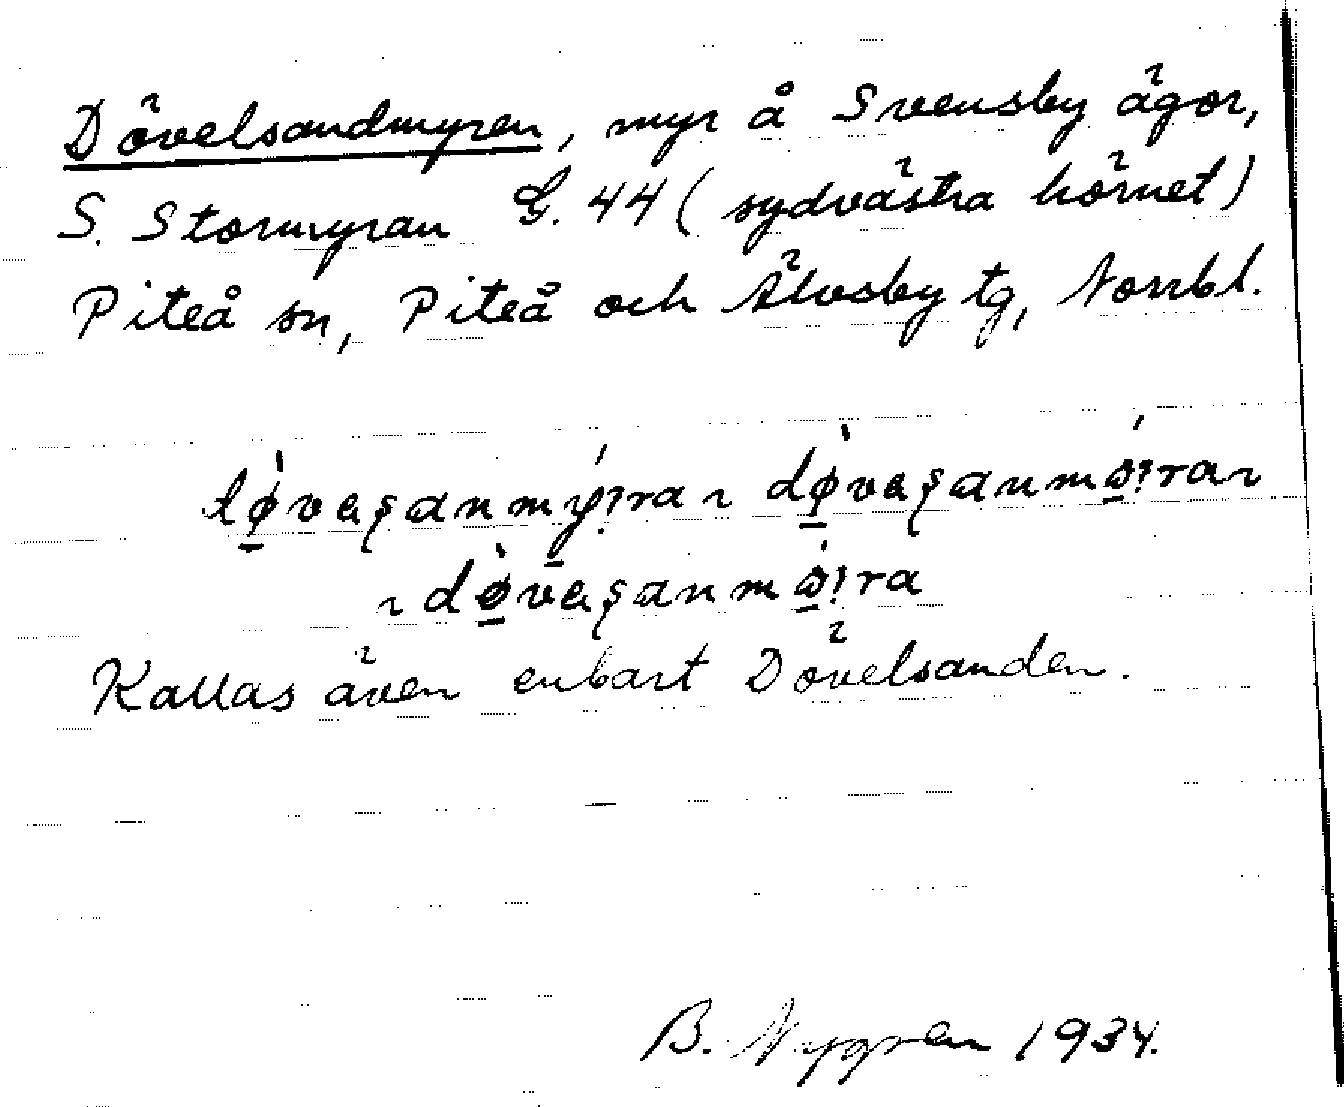 Dövelsandmyren, myr å Svensby ägor,
S. Stormyran G. 44 (sydvästra hörnet)
Piteå sn, Piteå och Älvsby tg, Norrbl.
dø̀vaʂanmý:ra ~ dø̀vaʂanmǿ:ra ~
~ dø̀vaʂanmǿ:ra
Kallas även enbart Dövelsanden.
B. Nygren 1934.